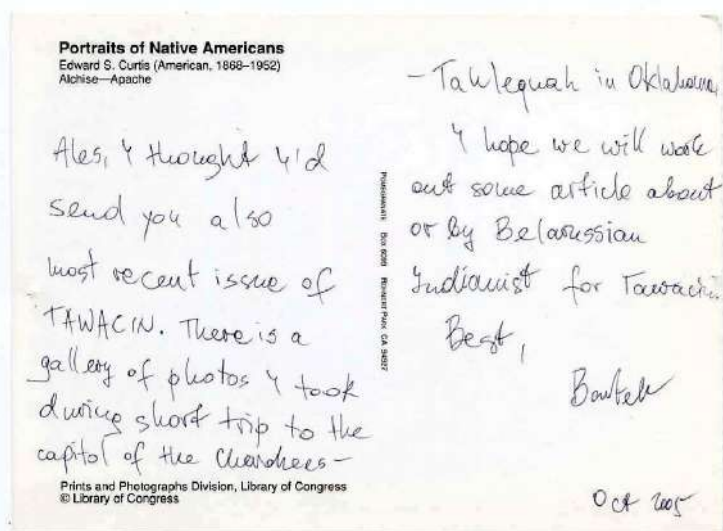 Portraits of Native Americans
Edward S. Curtis (American, 1868–1952)
Alchise—Apache
Ales, I thought I'd
send you also
most recent issue of
TAWACIN. There is a
gallery of photos I took
during short trip to the
capitol of the Cherokees –
Prints and Photographs Division, Library of Congress
© Library of Congress
POMEGRANATE BOX 6099 ROHNERT PARK CA 94927
– Tahlequah in Oklahoma.
I hope we will work
out some article about
or by Belarussian
Indianist for Tawacin
Best,
Bartek
Oct 2005